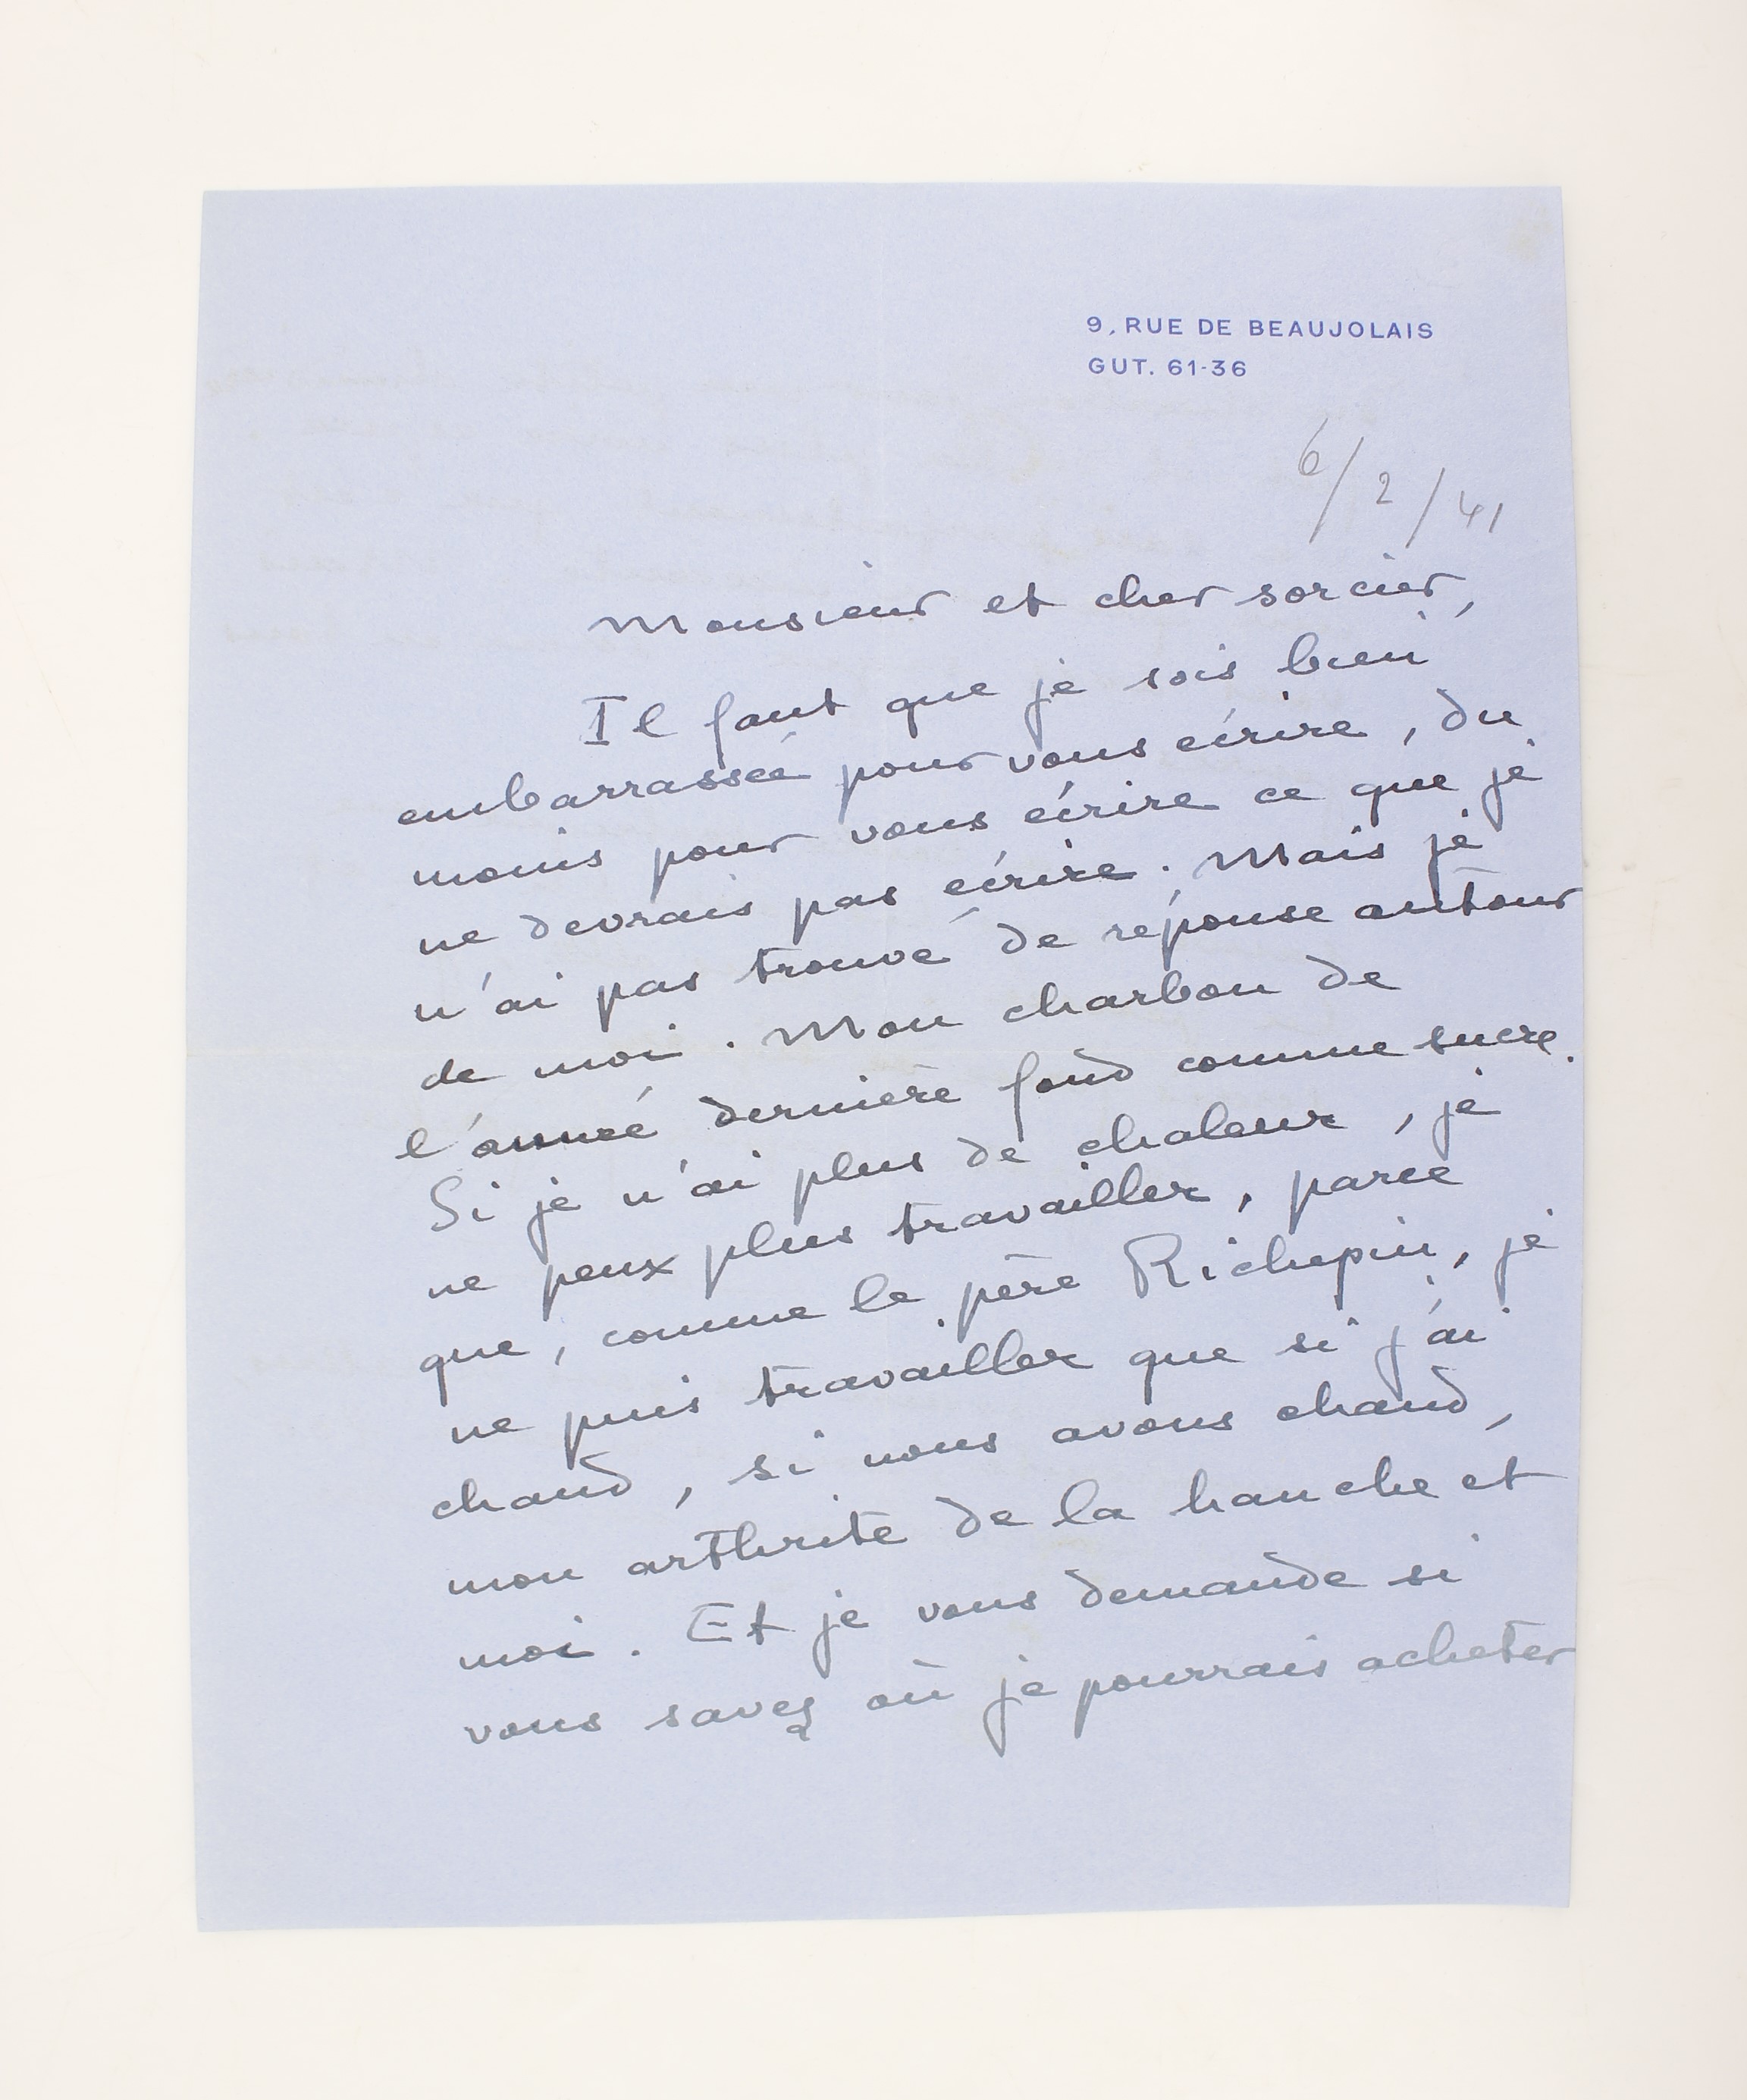 9, RUE DE BEAUJOLAIS
GUT. 61-36
6/2/41
Monsieur et cher sorcier,
Il faut que je sois bien
embarrassée pour vous écrire, du
moins pour vous écrire ce que je
ne devrais pas écrire. Mais je
n'ai pas trouvé de réponse autour
de moi. Mon charbon de
l'année dernière fond comme sucre.
Si je n'ai plus de chaleur, je
ne peux plus travailler, parce
que, comme le père Richepin, je
ne puis travailler que si j'ai
chaud, si nous avons chaud,
mon arthrite de la hanche et
moi. Et je vous demande si
vous savez où je pourrais acheter